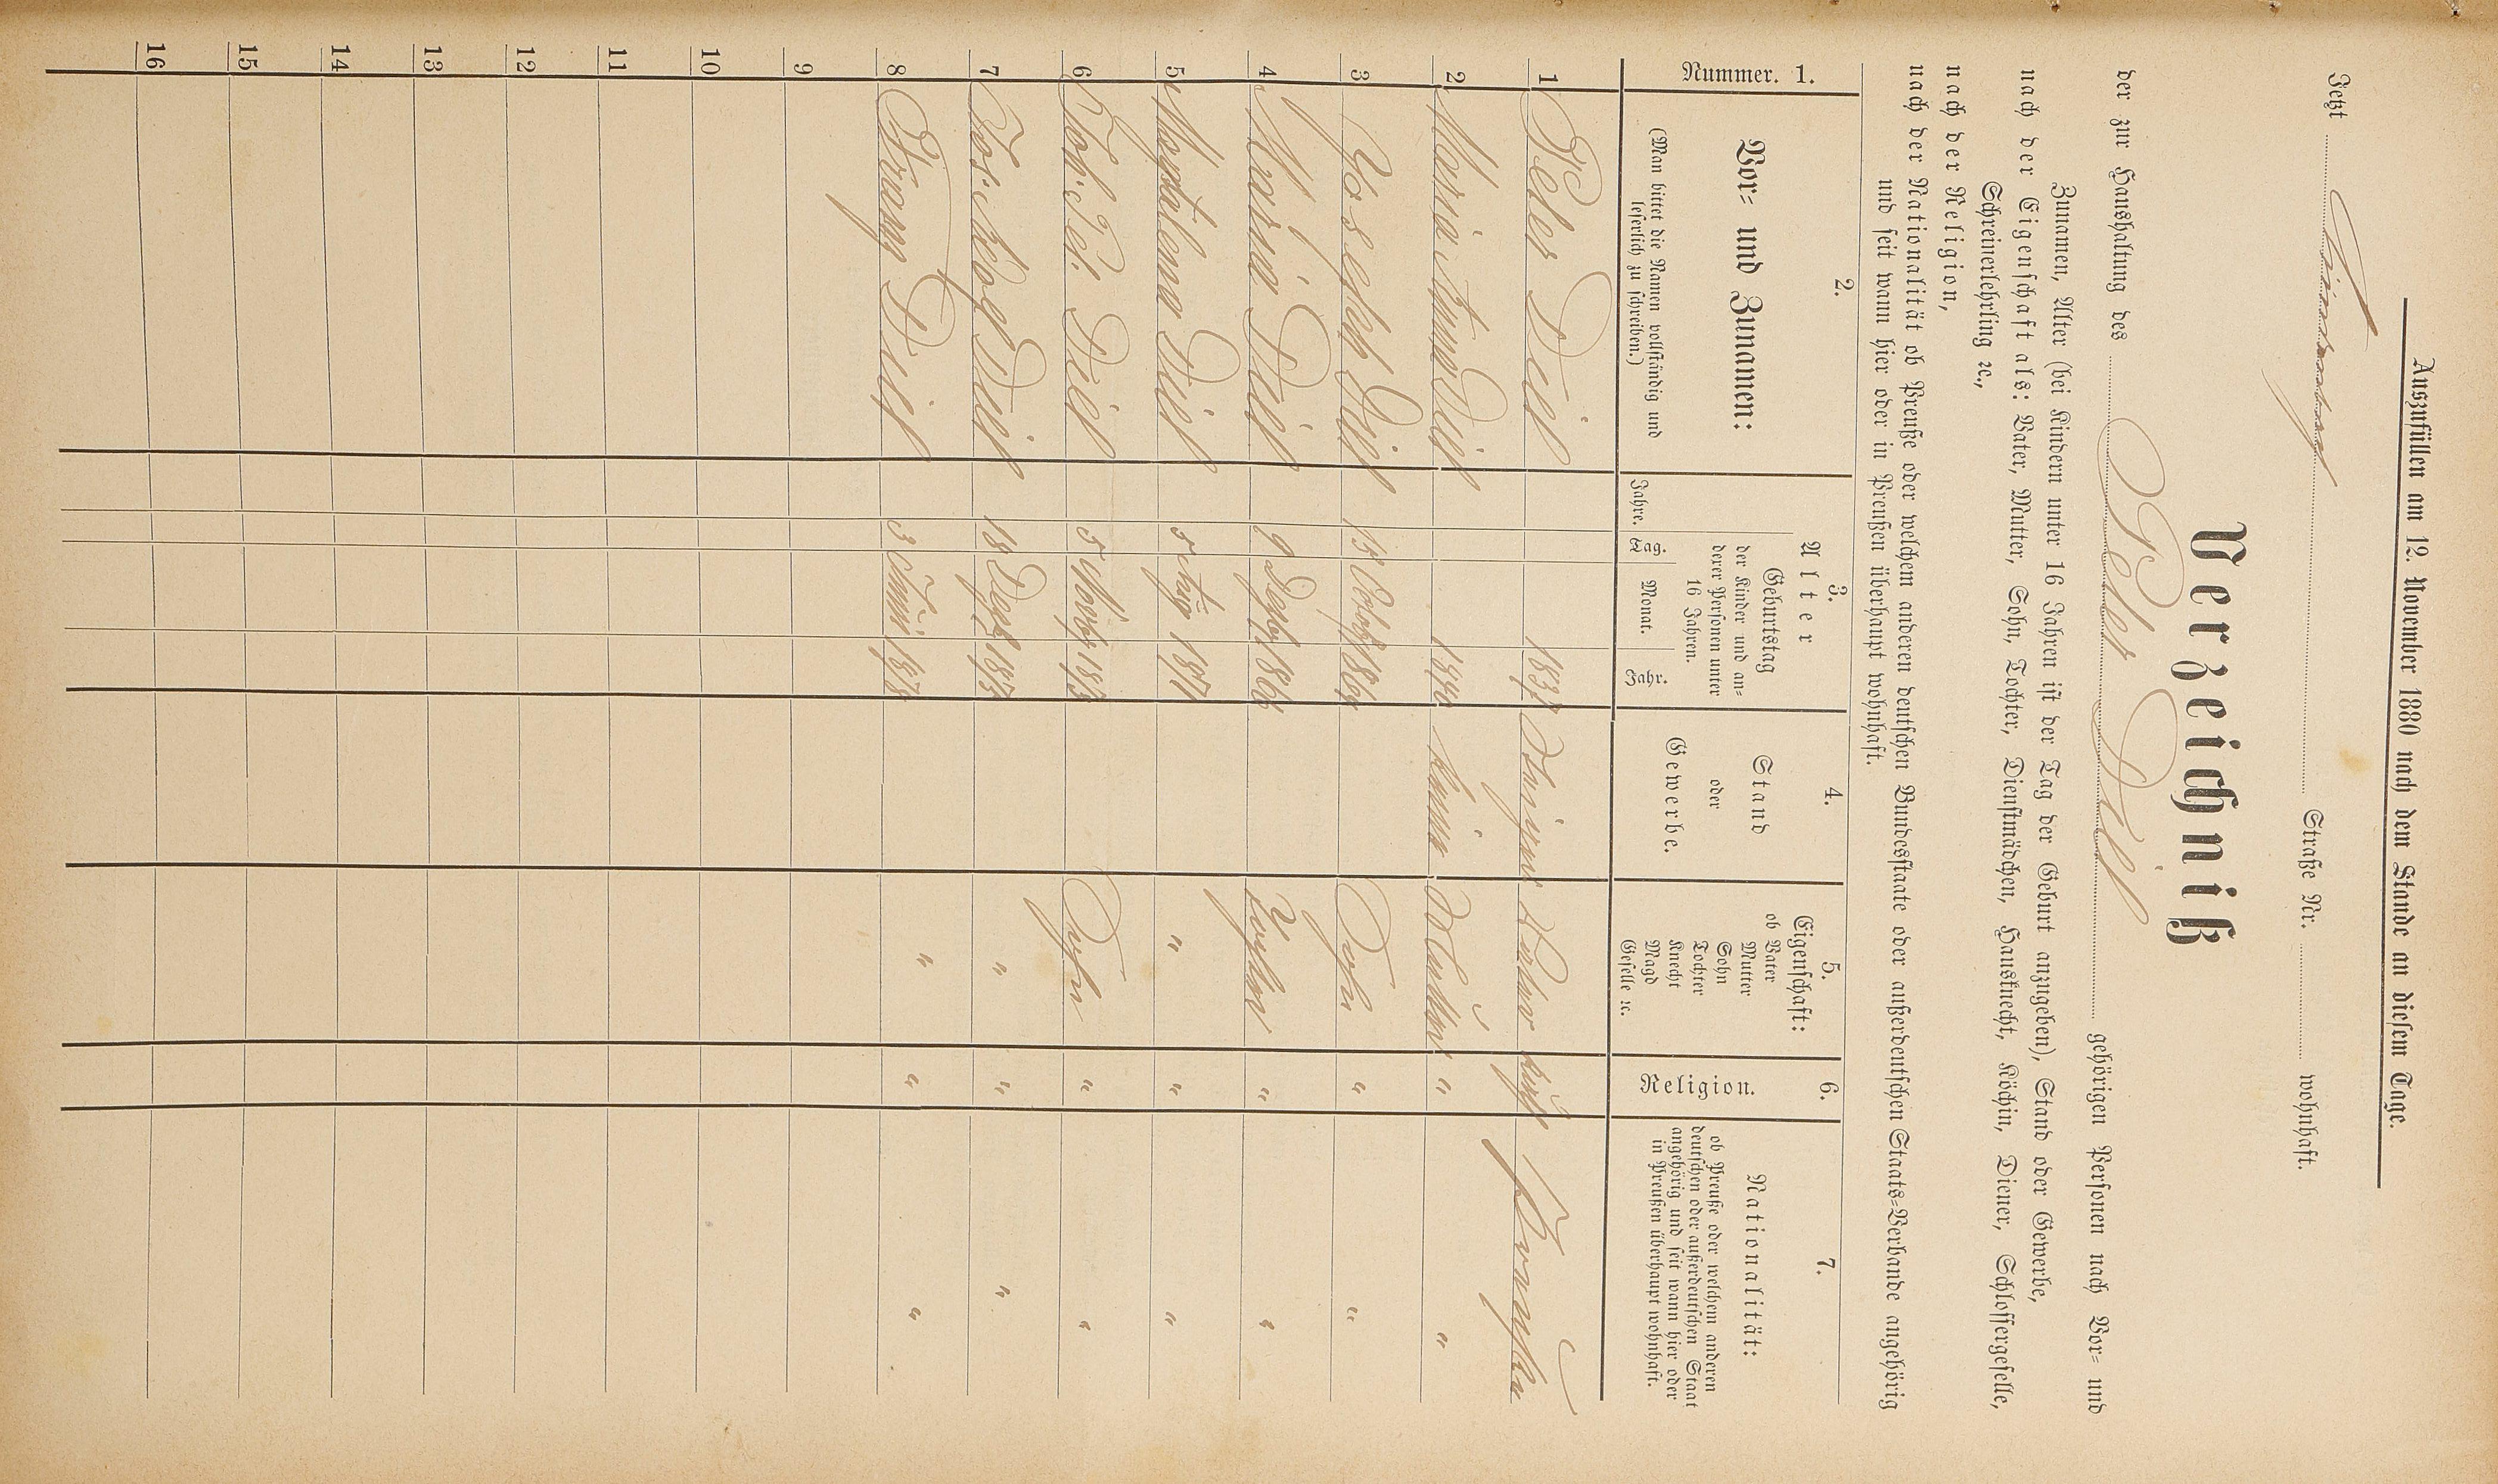 Auszufüllen am 12. November 1880 nach dem Stande an diesem Tage.
Jetzt Straße Nr. wohnhaft.
Verzeichniß
der zur Haushaltung des Peter Diel gehörigen Personen nach Vor= und
Zunamen, Alter (bei Kindern unter 16 Jahren ist der Tag der Geburt anzugeben), Stand oder Gewerbe,
nach der Eigenschaft als: Vater, Mutter, Sohn, Tochter, Dienstmädchen, Hausknecht, Köchin, Diener, Schlossergeselle,
Schreinerlehrling ꝛc.,
nach der Religion,
nach der Nationalität ob Preuße oder welchem anderen deutschen Bundesstaate oder außerdeutschen Staats=Verbande angehörig
und seit wann hier oder in Preußen überhaupt wohnhaft.
Nummer. 1.
2.
Vor= und Zunamen:
(Man bittet die Namen vollständig und
leserlich zu schreiben.)
3.
Alter
Jahre.
Geburtstag
der Kinder und an=
derer Personen unter
16 Jahren.
Tag. Monat. Jahr.
4.
Stand
oder
Gewerbe.
5.
Eigenschaft:
ob Vater
Mutter
Sohn
Tochter
Knecht
Magd
Geselle ꝛc.
6.
Religion.
7.
Nationalität:
ob Preuße oder welchem anderen
deutschen oder außerdeutschen Staat
angehörig und seit wann hier oder
in Preußen überhaupt wohnhaft.
1 Peter Diel 1837 Vater kath Preußen
2 Maria Anna Diel 1840 Mutter " "
3 Joseph Diel 15 Octob 1864 Sohn " "
4 Maria Diel 9 Dezb 1866 Tochter " "
5 Magdalena Diel 5 Aug 1871 " " "
6 Joh. Pet. Diel 5 Novb 1873 Sohn " "
7 Jos. Adolf Diel 18 Dezb " " "
8 Franz Diel 3 Juni 1878 " " "
9
10
11
12
13
14
15
16